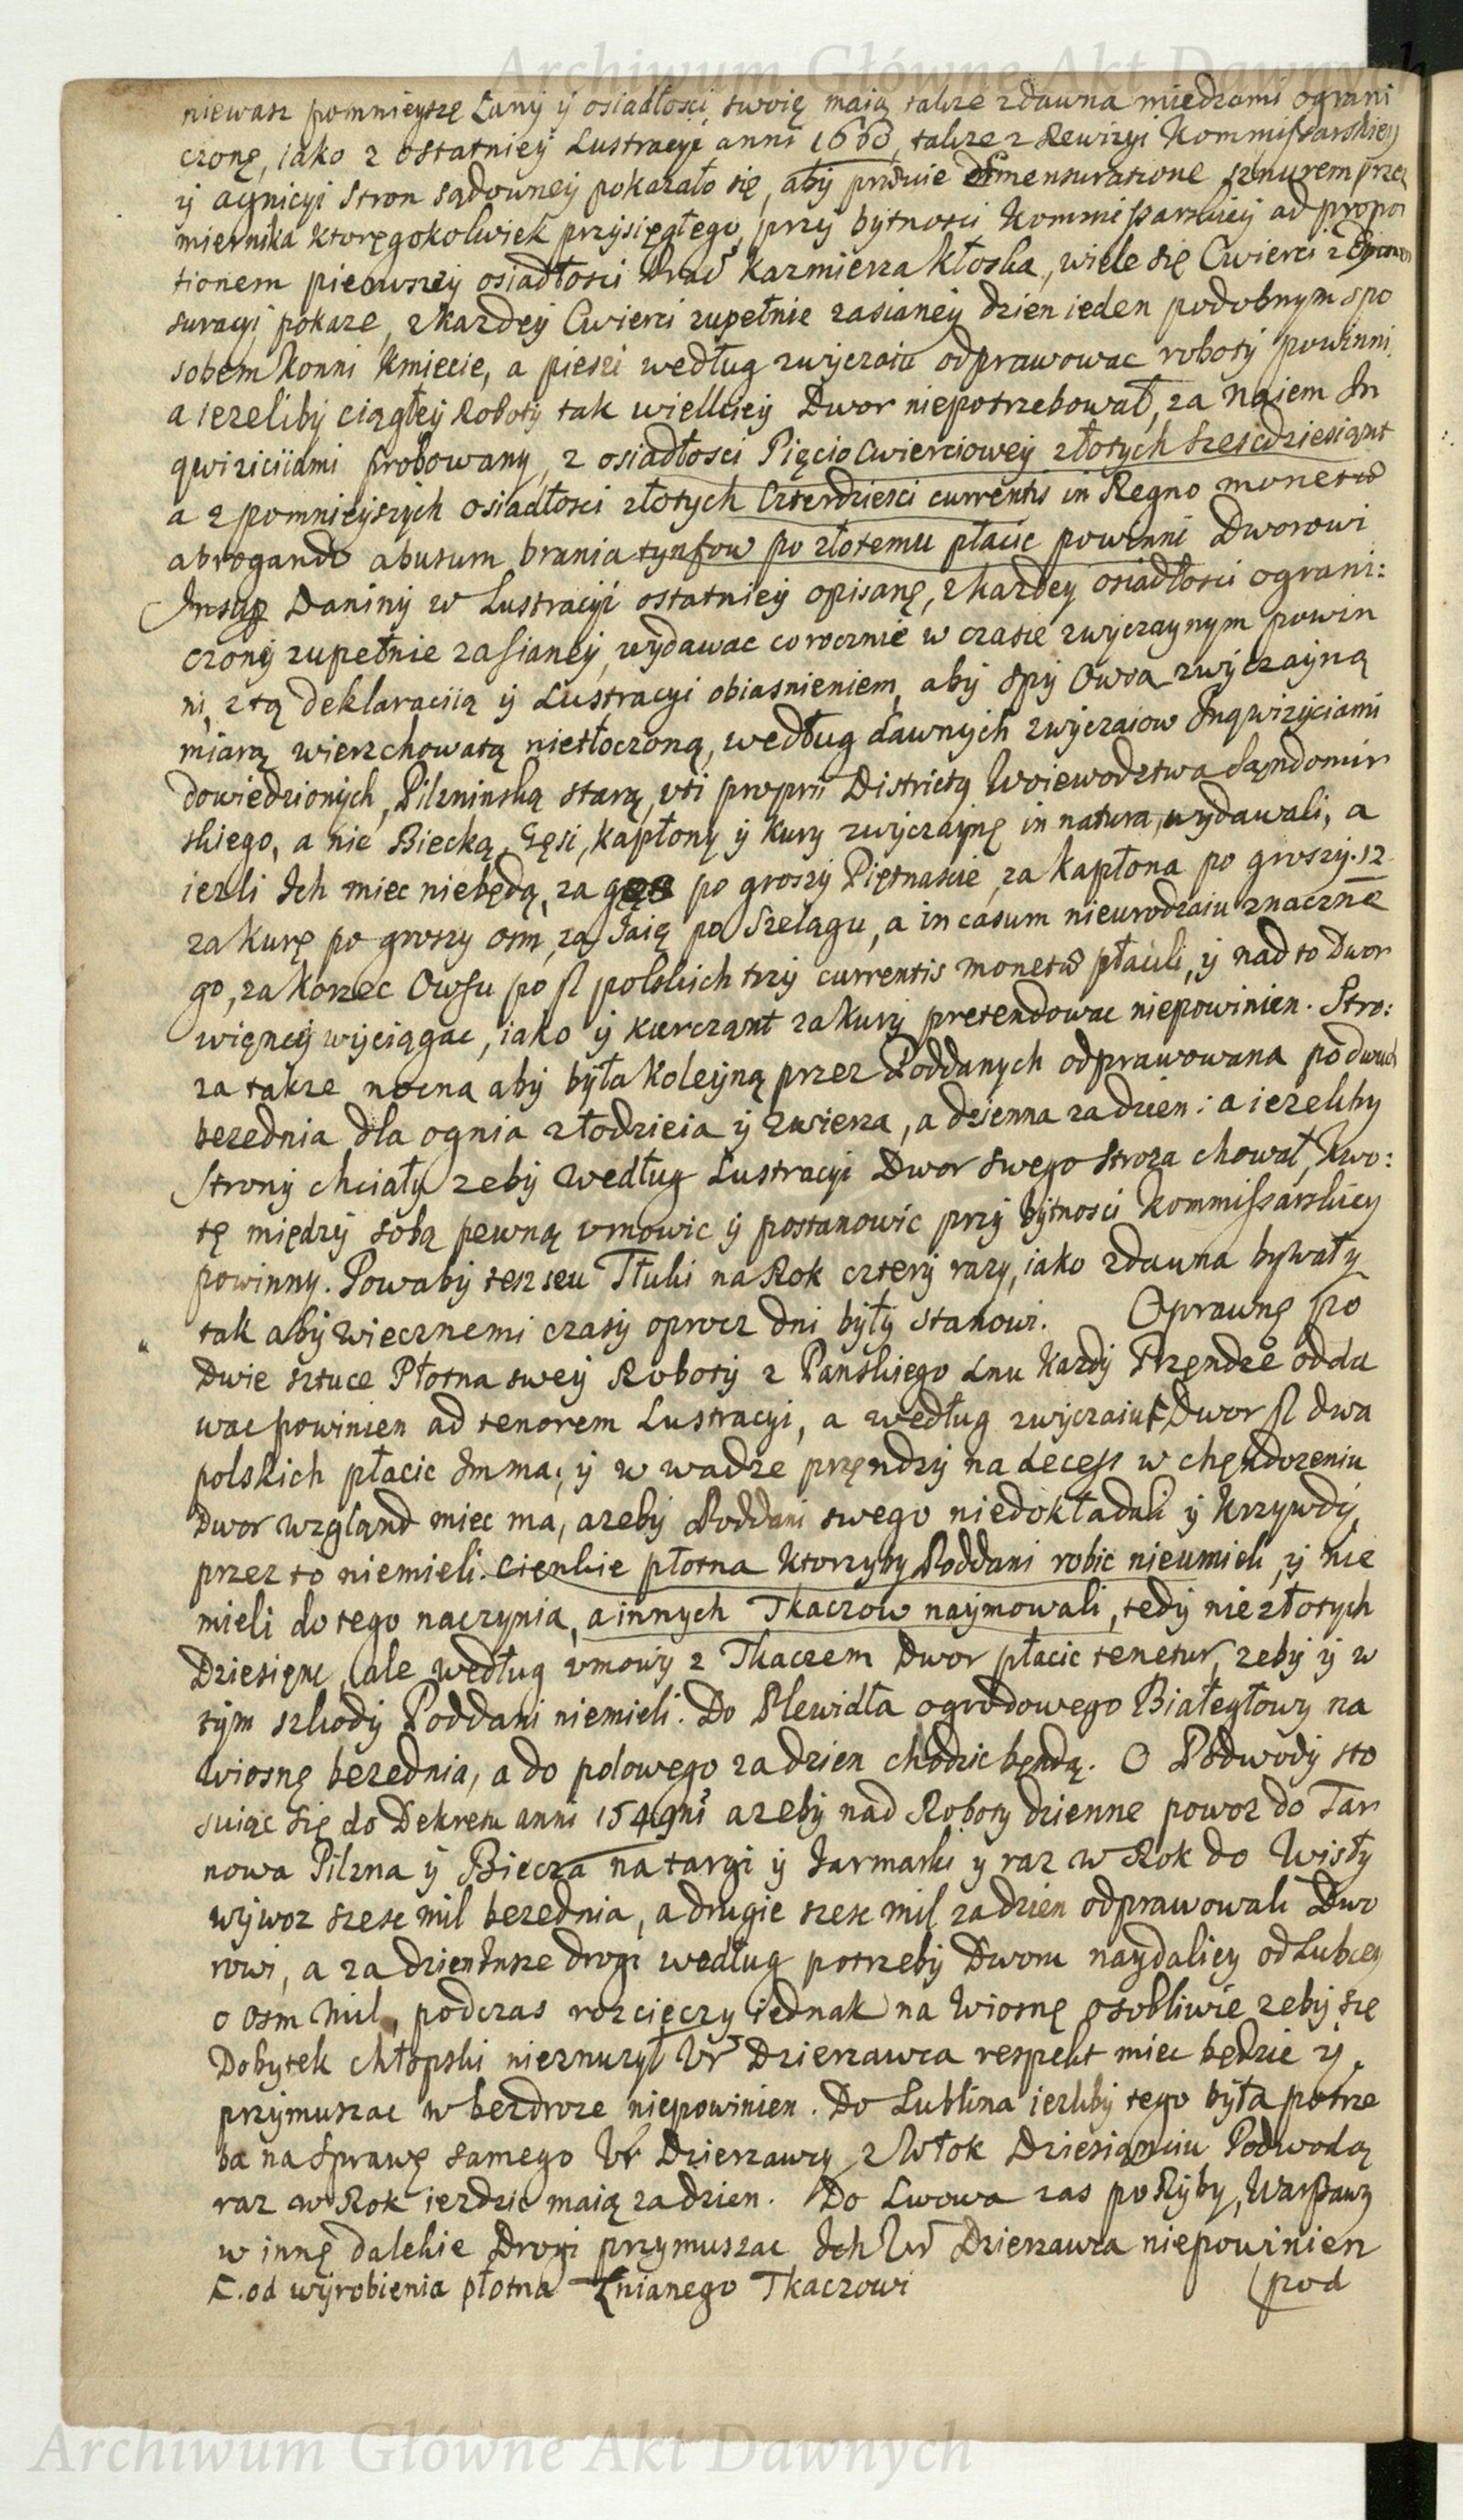 Archiwum Główne Akt Dawnych
niewasz pomnieyszę Łany ÿ osiadłosci swoię maią takze zdawna miedzami ograni
czonę, iako z ostatnieÿ Lustracyi anni 1663, takze z Rewizyi Kommissarskiey
ÿ agnicyi Stron sądowneÿ pokazało się, abÿ prawie dimensuratione sznurem przez
miernika ktoregokolwiek przÿsięgłego, przÿ bÿtnosci Kommissarskieÿ ad propor
tionem pierwszeÿ osiadłosci Kazmierza Kłoska, wiele się Cwierci z
suracyi pokaze, z kazdeÿ Cwierci zupełnie zasianeÿ dzien ieden podobnym spo
sobem konni Kmiecie, a piesi według zwÿczaiu odprawowac robotÿ powinni.
a iezelibÿ ciągłeÿ Robotÿ tak wielkieÿ Dwor niepotrzebował, za naiem In
qwiziciiami probowany, z osiadłosci Pięcio Cwierciowey złotych szescdziesiąnt
a z pomnieÿszÿch osiadłosci złotych Czterdziesci currentis in Regno monetæ
abrogando abusum brania tynfow po złotemu płacic powinni Dworowi
Insup Daninÿ w Lustracyi ostatnieÿ opisanę, z kazdey osiadłosci ograni:
czonÿ zupełnie zasianeÿ, wÿdawac corocznie w czasie zwÿczaynym powin
ni, z tą deklaraciią ÿ Lustracyi obiasnieniem, abÿ Spÿ Owsa zwÿczaÿną
miarą wierzchowatą nietłoczoną, według dawnÿch zwÿczaiow Inqwizyciami
dowiedzionÿch, Pilzninską starą, uti proprii Districtg Woiewodztwa Sąndomir
skiego, a nie Biecką, Gęsi, kapłonÿ ÿ kury zwÿczaÿnę in natura wÿdawali, a
iezli Ich miec niebędą, za gęś po groszÿ Piętnascie, za kapłona po groszÿ. 12
za kurę po groszy osm, za Iaię po Szelągu, a in casum nieurodzaiu znaczne
go, za korzec Owsu po fl polskich trzÿ currentis monetæ płacili, ÿ nad to Dwor
więnceÿ wÿciągac, iako ÿ kurcząnt za kurÿ pretendowac niepowinien. Stro:
za takze nocna abÿ bÿła koleÿną przez Poddanych odprawowana po dwuch
bezednia dla ognia złodzieia ÿ zwierza, a dzienna za dzien: a iezelibÿ
Stronÿ chciałÿ zebÿ według Lustracyi Dwor swego stroza chował, kwo:
tę międzÿ sobą pewną umowic ÿ postanowic przÿ bÿtnosci Kommissarskieÿ
powinny. Powabÿ tesz seu Tłuki na Rok czterÿ razy, iako zdawna bywały
tak abÿ wiecznemi czasÿ oprocz dni bÿłÿ stanowi. Oprawnę po
Dwie sztuce Płotna sweÿ Robotÿ z Panskiego Lnu kazdÿ Przęndze odda
wac powinien ad tenorem Lustracyi, a według zwÿczaiu Ϝ Dwor fl dwa
polskich płacic Imma; ÿ w wadze przęndzÿ na decess w chęndozeniu
Dwor wzgląnd miec ma, azebÿ Poddani swego niedokładali ÿ krzywdÿ
przez to niemieli. cienkie płotna ktorzyby Poddani robic nieumieli, ÿ nie
mieli do tego naczynia, a innych Tkaczow naÿmowali, tedÿ nie złotych
Dziesięnc, ale według umowÿ z Tkaczem Dwor płacic tenetur, zebÿ ÿ w
tÿm szkodÿ Poddani niemieli. Do Plewidła ogrodowego Białegłowy na
wiosnę bezednia, a do polowego za dzien chodzic bęndą. O Podwodÿ sto
suiąc się do Dekretu anni 1549ni azebÿ nad Roboty dzienne powoz do Tar
nowa Pilzna ÿ Biecza na targi ÿ Iarmarki ÿ raz w Rok do Wisły
wÿwoz szesc mil bezednia, a drugie szesc mil za dzien odprawowali Dwo
rowi, a za dzien insze drogi według potrzebÿ Dworu naydaliey od Lubczy
o osm mil, podczas rozcięczy iednak na wiosnę osobliwie zebÿ się
Dobytek chłopski nieznuzył Ur Dzierzawca respekt miec będzie ÿ
przÿmuszac w bezdroze niepowinien. Do Lublina iezlibÿ tego bÿła potrze
ba na sprawę samego Ur Dzierzawcy z Włok Dziesiąnciu Podwodą
raz w Rok iezdzic maią za dzien. Do Lwowa zas po Rÿby, Warszawy
w innę dalekie Drogi przymuszac Ich Ur Dzierzawca niepowinien
Ϝ. od wÿrobienia płotna Lnianego Tkaczowi pod
Archiwum Główne Akt Dawnych